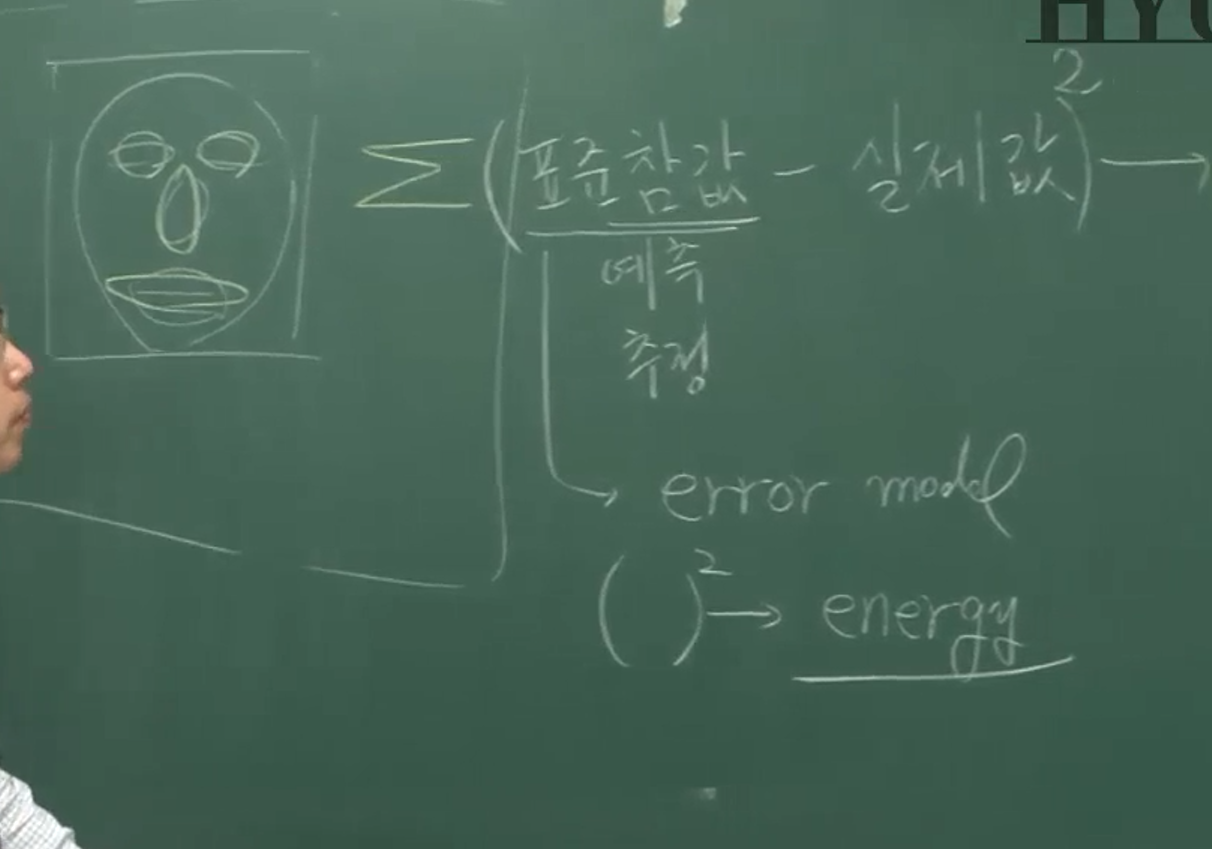 Σ(표준참값 - 실제값)² →
예측
추정
→ error model
( )² → energy